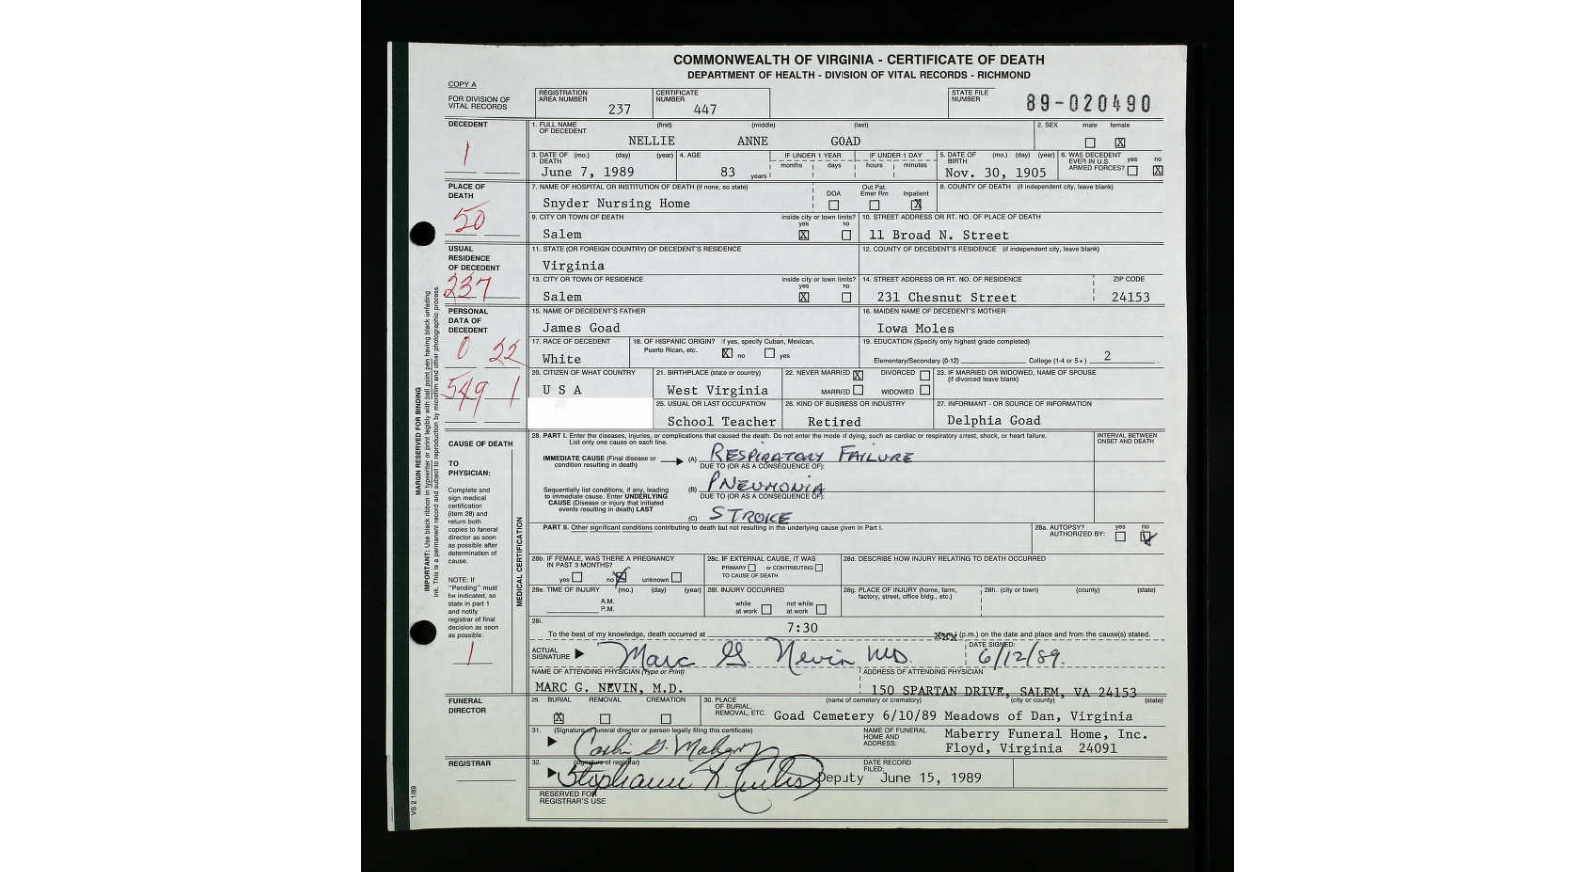 COMMONWEALTH OF VIRGINIA - CERTIFICATE OF DEATH
DEPARTMENT OF HEALTH - DIVISION OF VITAL RECORDS - RICHMOND
COPY A
FOR DIVISION OF VITAL RECORDS
REGISTRATION AREA NUMBER 237
CERTIFICATE NUMBER 447
STATE FILE NUMBER 89-020490
DECEDENT
1
1. FULL NAME OF DECEDENT (first) (middle) (last)
NELLIE ANNE GOAD
2. SEX male female X
3. DATE OF DEATH (mo.) (day) (year)
June 7, 1989
4. AGE 83 years
IF UNDER 1 YEAR months days
IF UNDER 1 DAY hours minutes
5. DATE OF BIRTH (mo.) (day) (year)
Nov. 30, 1905
6. WAS DECEDENT EVER IN U.S. ARMED FORCES? yes no X
PLACE OF DEATH
50
7. NAME OF HOSPITAL OR INSTITUTION OF DEATH (if none, so state)
Snyder Nursing Home
DOA Out Pat. Emer Rm Inpatient X
8. COUNTY OF DEATH (if independent city, leave blank)
9. CITY OR TOWN OF DEATH
Salem
inside city or town limits? yes no X
10. STREET ADDRESS OR RT. NO. OF PLACE OF DEATH
11 Broad N. Street
USUAL RESIDENCE OF DECEDENT
237
11. STATE (OR FOREIGN COUNTRY) OF DECEDENT'S RESIDENCE
Virginia
12. COUNTY OF DECEDENT'S RESIDENCE (if independent city, leave blank)
13. CITY OR TOWN OF RESIDENCE
Salem
inside city or town limits? yes no X
14. STREET ADDRESS OR RT. NO. OF RESIDENCE
231 Chesnut Street
ZIP CODE
24153
PERSONAL DATA OF DECEDENT
0 22
549 1
15. NAME OF DECEDENT'S FATHER
James Goad
16. MAIDEN NAME OF DECEDENT'S MOTHER
Iowa Moles
17. RACE OF DECEDENT
White
18. OF HISPANIC ORIGIN? If yes, specify Cuban, Mexican, Puerto Rican, etc. X no yes
19. EDUCATION (Specify only highest grade completed)
Elementary/Secondary (0-12) College (1-4 or 5+) 2
20. CITIZEN OF WHAT COUNTRY
U S A
21. BIRTHPLACE (state or country)
West Virginia
22. NEVER MARRIED X DIVORCED
MARRIED WIDOWED
23. IF MARRIED OR WIDOWED, NAME OF SPOUSE (if divorced leave blank)
25. USUAL OR LAST OCCUPATION
School Teacher
26. KIND OF BUSINESS OR INDUSTRY
Retired
27. INFORMANT - OR SOURCE OF INFORMATION
Delphia Goad
CAUSE OF DEATH
TO PHYSICIAN:
Complete and sign medical certification (item 28) and return both copies to funeral director as soon as possible after determination of cause.
NOTE: If "Pending" must be indicated, so state in part 1 and notify registrar of final decision as soon as possible.
1
28. PART I. Enter the diseases, injuries, or complications that caused the death. Do not enter the mode if dying, such as cardiac or respiratory arrest, shock, or heart failure.
List only one cause on each line.
INTERVAL BETWEEN ONSET AND DEATH
IMMEDIATE CAUSE (Final disease or condition resulting in death)
(A) RESPIRATORY FAILURE
DUE TO (OR AS A CONSEQUENCE OF):
Sequentially list conditions, if any, leading to immediate cause. Enter UNDERLYING CAUSE (Disease or injury that initiated events resulting in death) LAST
(B) PNEUMONIA
DUE TO (OR AS A CONSEQUENCE OF):
(C) STROKE
PART II. Other significant conditions contributing to death but not resulting in the underlying cause given in Part I.
28a. AUTOPSY? AUTHORIZED BY: yes no
28b. IF FEMALE, WAS THERE A PREGNANCY IN PAST 3 MONTHS?
yes no unknown
28c. IF EXTERNAL CAUSE, IT WAS
PRIMARY or CONTRIBUTING
TO CAUSE OF DEATH
28d. DESCRIBE HOW INJURY RELATING TO DEATH OCCURRED
28e. TIME OF INJURY (mo.) (day) (year)
A.M.
P.M.
28f. INJURY OCCURRED
while at work not while at work
28g. PLACE OF INJURY (home, farm, factory, street, office bldg., etc.)
28h. (city or town) (county) (state)
28i.
To the best of my knowledge, death occurred at 7:30 (p.m.) on the date and place and from the cause(s) stated.
ACTUAL SIGNATURE Marc G. Nevin MD.
DATE SIGNED: 6/12/89.
NAME OF ATTENDING PHYSICIAN (Type or Print)
MARC G. NEVIN, M.D.
ADDRESS OF ATTENDING PHYSICIAN
150 SPARTAN DRIVE, SALEM, VA 24153
FUNERAL DIRECTOR
29. BURIAL REMOVAL CREMATION
X
30. PLACE OF BURIAL, REMOVAL, ETC. (name of cemetery or crematory) (city or county) (state)
Goad Cemetery 6/10/89 Meadows of Dan, Virginia
31. (Signature of funeral director or person legally filing this certificate)
NAME OF FUNERAL HOME AND ADDRESS:
Maberry Funeral Home, Inc.
Floyd, Virginia 24091
REGISTRAR
32. (signature of registrar)
Deputy
DATE RECORD FILED:
June 15, 1989
RESERVED FOR REGISTRAR'S USE
VS 2 1/89
MARGIN RESERVED FOR BINDING
IMPORTANT: Use black ribbon in typewriter or print legibly with ball point pen having black unfading ink. This is a permanent record and subject to reproduction by microfilm and other photographic process.
MEDICAL CERTIFICATION